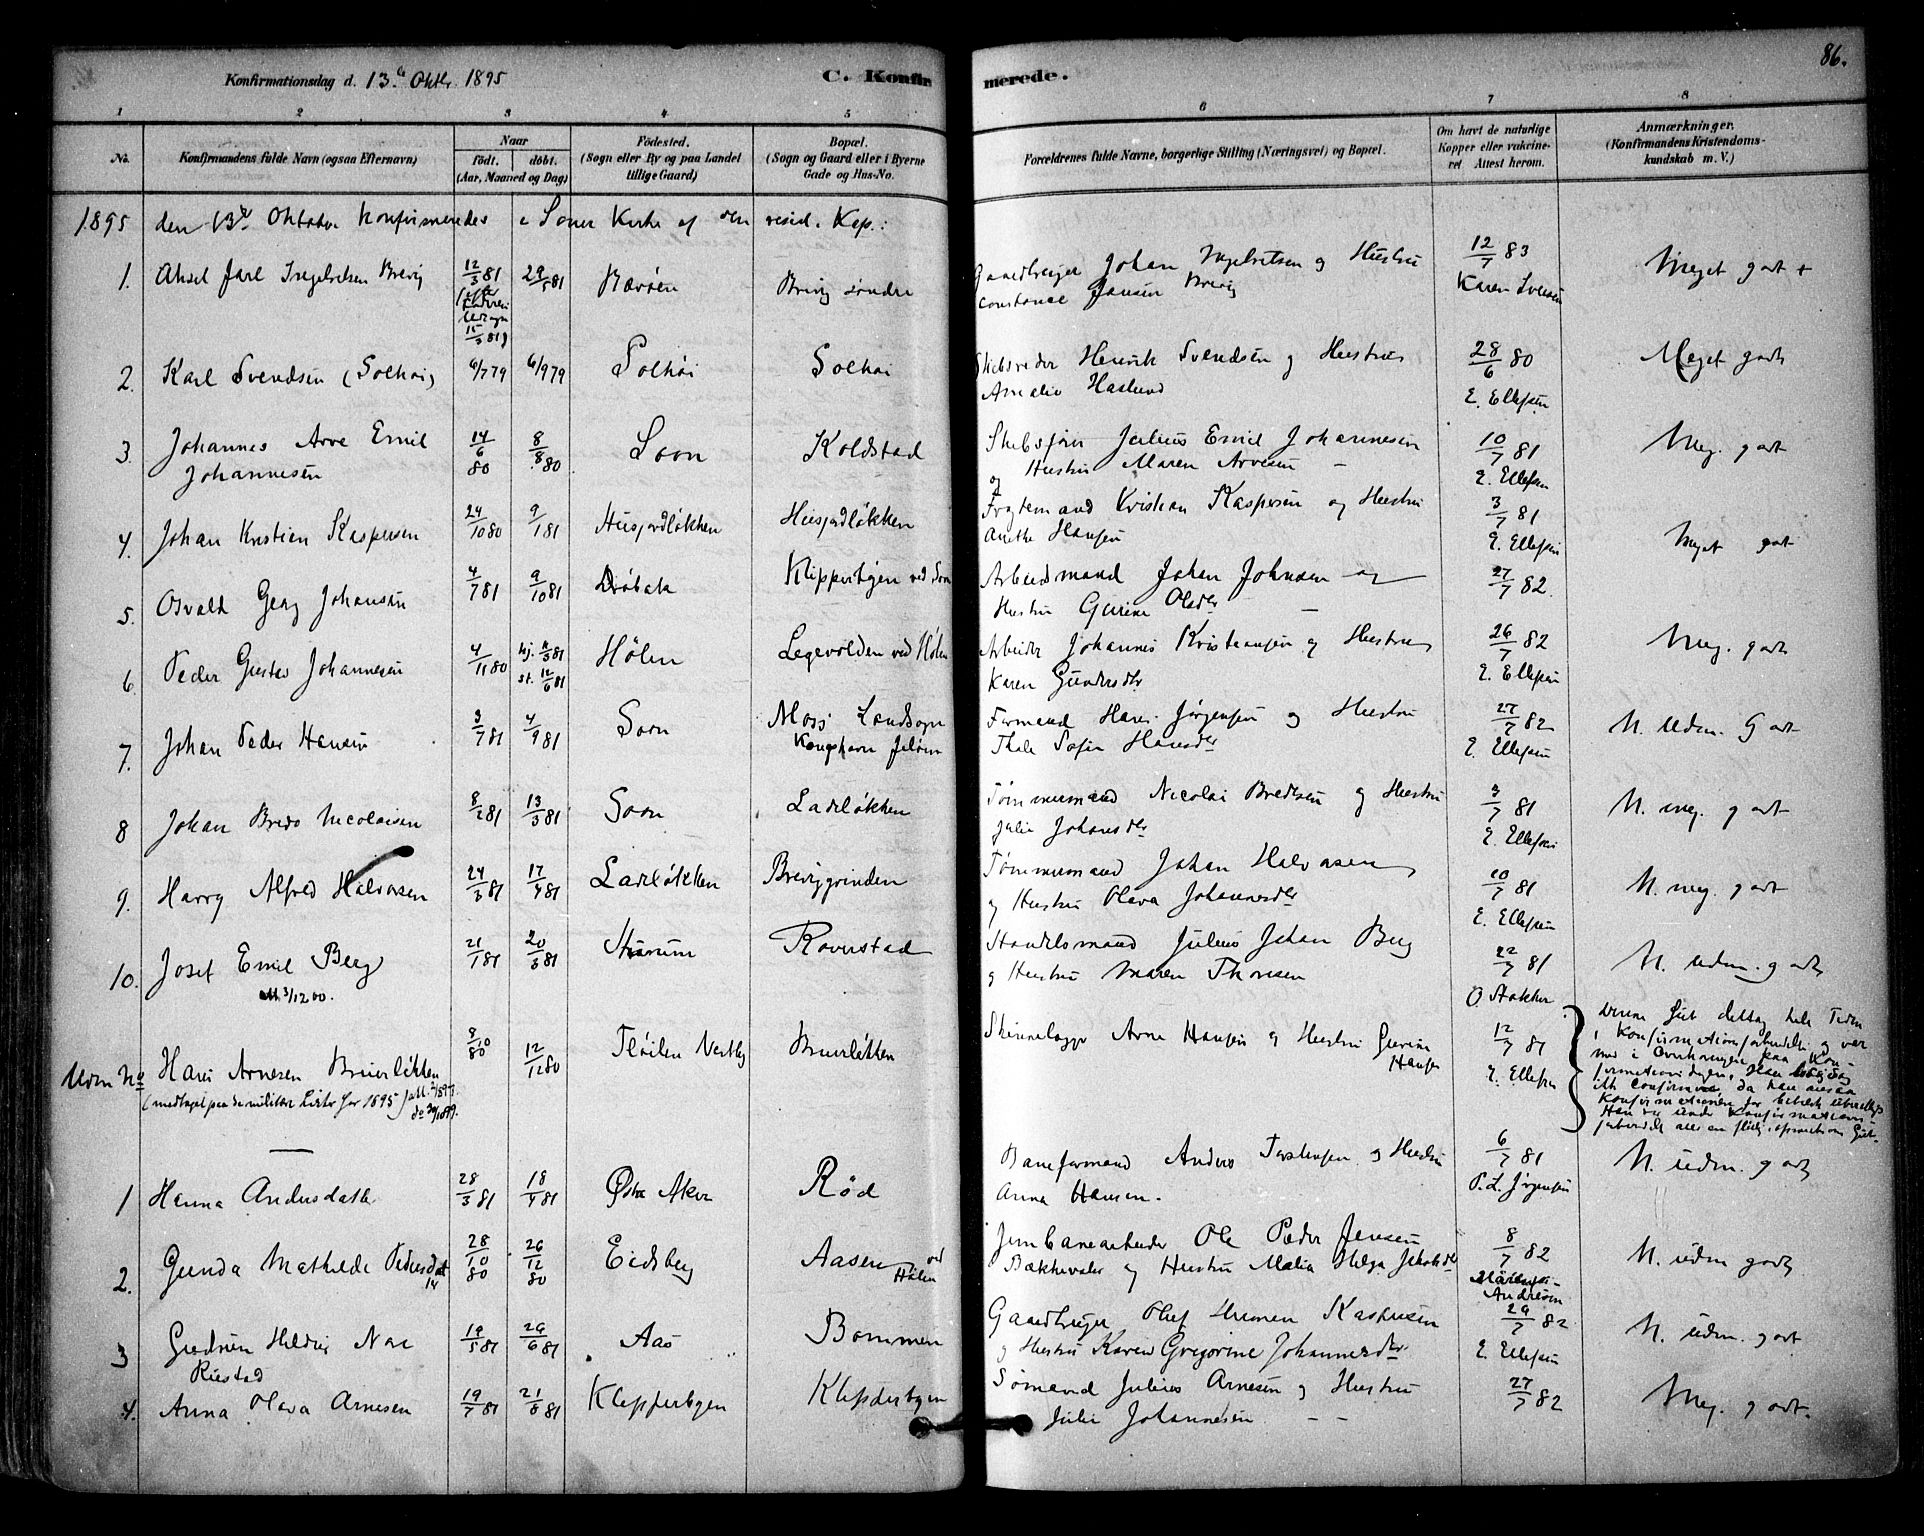 Konfirmationsdag d. 13de Oktbr. 1895
C. Konfir
merede.
86.
1 2 3 4 5
6 7 8
No.
Konfirmandens fulde Navn (ogsaa Efternavn)
Naar
født. døbt.
(Aar, Maaned og Dag)
Fødested.
(Sogn eller By og paa Landet
tillige Gaard)
Bopæl.
(Sogn og Gaard eller i Byerne
Gade og Hus-No.
Forældrenes fulde Navne, borgerlige Stilling (Næringsvei) og Bopæl.
Om havt de naturlige
Kopper eller vakcine-
ret Attest herom.
Anmærkninger.
(Konfirmandens Kristendoms-
kundskab m. V.)
1895 den 13de Oktober konfirmeredes i Soner Kirke af den resid. Kap.:
1. Aksel Jarl Ingebretsen Brevig 12/3 81 29/5 81 Brevig søndre
15/3 81)
Gaardbruger Johan Ingebretsen og Hustru
Constance Jansen Brevig
12/7 83
Karen Iversen
Meget godt +
2. Karl Svendsen (Solhøi) 6/7 79 6/9 79 Solhøi Solhøi
Skibsreder Henrik Svendsen og Hustru
Amalie Haslund
28/6 80
E. Ellefsen
Meget godt
3. Johannes Arve Emil
Johannesen
14/6 80 8/8 80 Soon Koldstad
Skibsfører Julius Emil Johannesen
og Hustru Maren Arvesen
10/7 81
E. Ellefsen
Meg. godt
4. Johan Kristian Kaspersen 24/10 80 9/1 81 Husjordløkken Husjordløkken
Kristian Kaspersen og Hustru
Anethe Hansen
3/7 81
E. Ellefsen
Meget godt
5. Osvald Georg Johansen 4/7 81 9/10 81 Drøbak Klepperbyen ved Son
Arbeidsmand Johan Johnsen og
Hustru Gurine Olsdtr
27/7 82.
6. Peder Gustav Johannesen 4/11 80 hj. 2/3 81 Hølen Legevolden ved Hølen
st. 12/6 81
Arbeider Johannes Kristiansen og Hustru
Karen Gundersdtr
26/7 82
E. Ellefsen
Meg. godt
7. Johan Peder Hansen 3/7 81 4/9 81 Soon Moss Landsogn
Kongshavn Jeløen
Formand Hans Jørgensen og Hustru
Thale Sofie Hansdtr
27/7 82
E. Ellefsen
M. udm. Godt
8 Johan Bredo Nicolaisen 8/2 81 13/3 81 Soon Ladeløkken
Tømmermand Nicolai Bredesen og Hustru
Julie Johansdtr
3/7 81
E. Ellefsen
M. meg. godt
9. Harry Alfred Halvorsen 24/3 81 17/4 81 Ladeløkken Breviggrinden
Tømmermand Johan Halvorsen
og Hustru Olava Johannesdtr
10/7 81
E. Ellefsen
M. meg. godt
10. Josef Emil Berg 21/1 81 20/3 81 Raverstad
att. 3/12 00.
Handelsmand Julius Johan Berg
og Hustru Maren Thoresen
22/7 81
O. Stokker
M. udm. godt
Udm No Hans Arnesen Bruerløkken 8/10 80 12/12 80 Fløiten Vestby Bruerløkken
(medtaget paa de militære Lister for 1895)
Skindælægger Arne Hansen og Hustru Gurine
Hansen
12/7 81
E. Ellefsen
Denne Gut deltog hele Tiden
i Konfirmationsforberedelse og var
med i Overhøringen paa Kon-
firmationsdagen,
ikke confirmere, da han ansaa
Konfirmationen for
Han var under Konfirmations-
forberedelse alle en flittig, opmerksom Gut.
1 Hanna Andersdatter 28/3 81 18/4 81 Østre Aker Rød
Baneformand Anders Torstensen og Hustru
Anna Hansen.
6/7 81
P. L. Jørgensen
M. udm. godt
2. Gunda Mathilde Pedersdat 28/10 80 26/12 80 Eidsberg Aasen ved
Hølen
Jernbanearbeider Ole Peder Jensen
Bækkevaler og Hustru Malia Helga Jakobsdtr
8/7 82
Andresen
M. udm godt
3 Gudrun Heldrig Noe
Riestad
19/5 81 26/6 81 Aas Bommen
Gaardbruger Olaf Herman Kaspersen
og Hustru Karen Gregorine Johannesdtr
29/7 82
E. Ellefsen
M. udm. godt
4. Anna Olava Arnesen 19/7 81 21/8 81 Klepperbyen Klepperbyen
Sømand Julius Arnesen og Hustru
Julie Johannesen
27/7 82
Meg. godt.